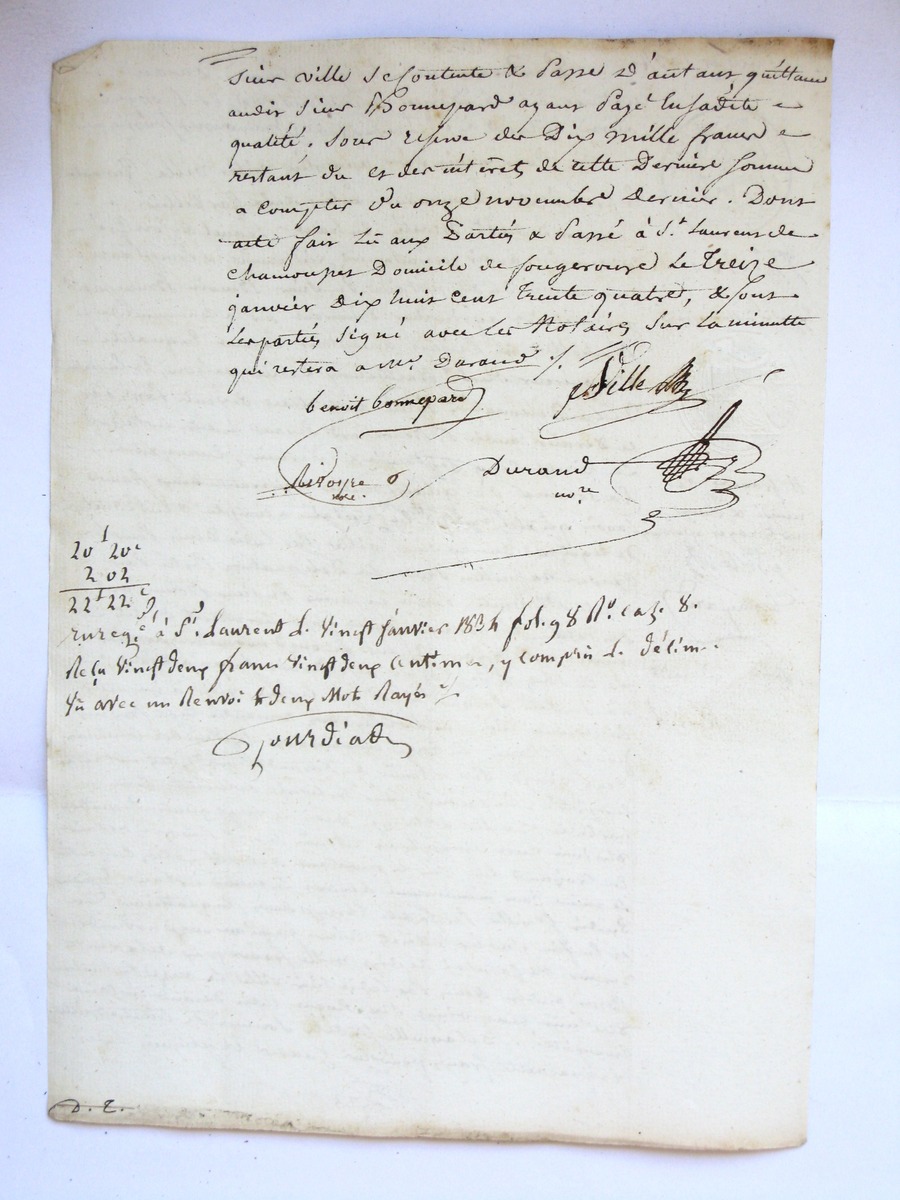 Sieur ville se contente & passe d'autant quittance
audit sieur Bonnepard ayant payé en sadite
qualité. sous reserve des Dix mille francs
restant du et des intérets de cette Derniere somme
a compter du onze novembre dernier. Dont
acte fait Lu aux Parties & passé à St. Laurent de
chamousset Domicile de fougerouse Le Treize
janvier dix huit cent trente quatre, & sont
Les parties signé avec les Notaires sur la minutte
qui restera a Me. Durand ./.
benoit bonnepard Ville
Durand
nore
20f 20c
2 02
22f 22c
enregé à St. Laurent le vingt Janvier 1834 fol. 98 Ro. case 8.
Reçu vingt deux francs vingt deux centimes, y compris le décime
Vu avec un Renvoi & deux Mots Rayés
Jourdiat
D. T.